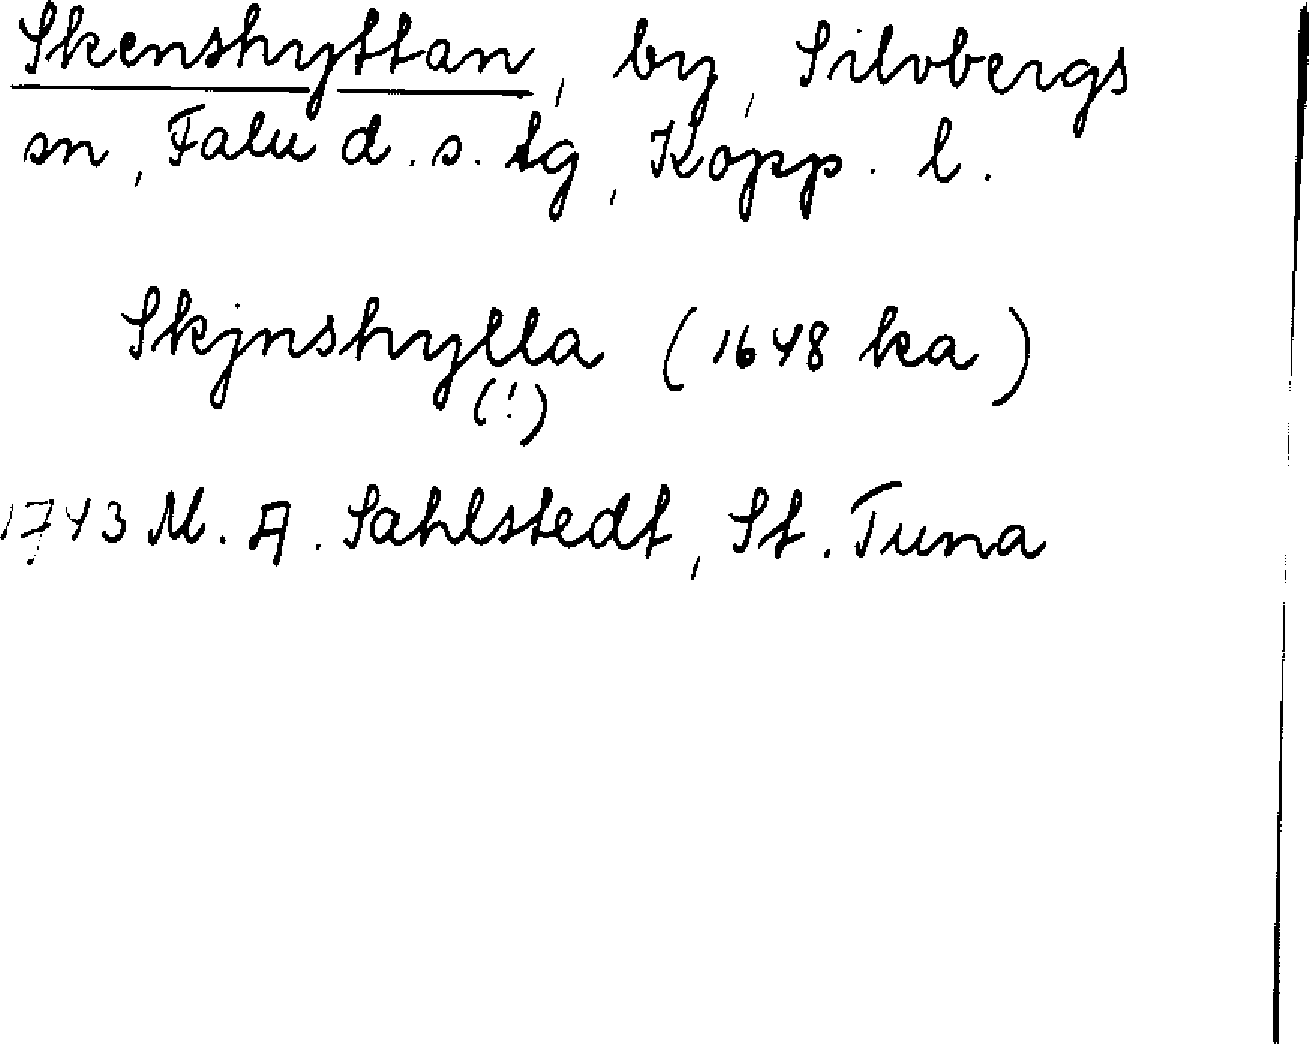 Skenshyttan, by, Silvbergs
sn, Falu d. s. tg, Kopp. l.
Skjnshylla (1648 ka)
(!)
1743 M. A. Sahlstedt, St. Tuna